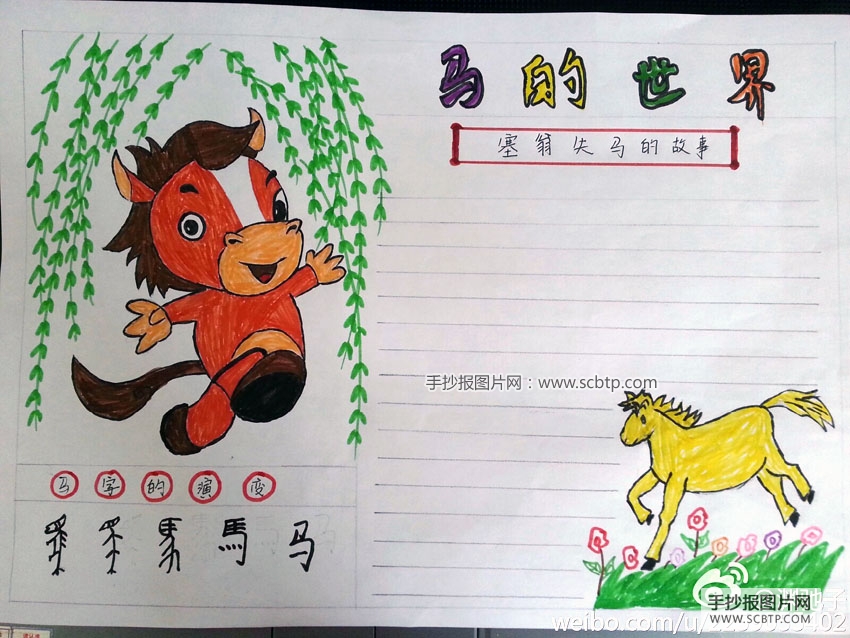 马的世界
塞翁失马的故事
手抄报图片网：www.scbtp.com
马字的演变
馬 马
手抄报图片网
WWW.SCBTP.COM